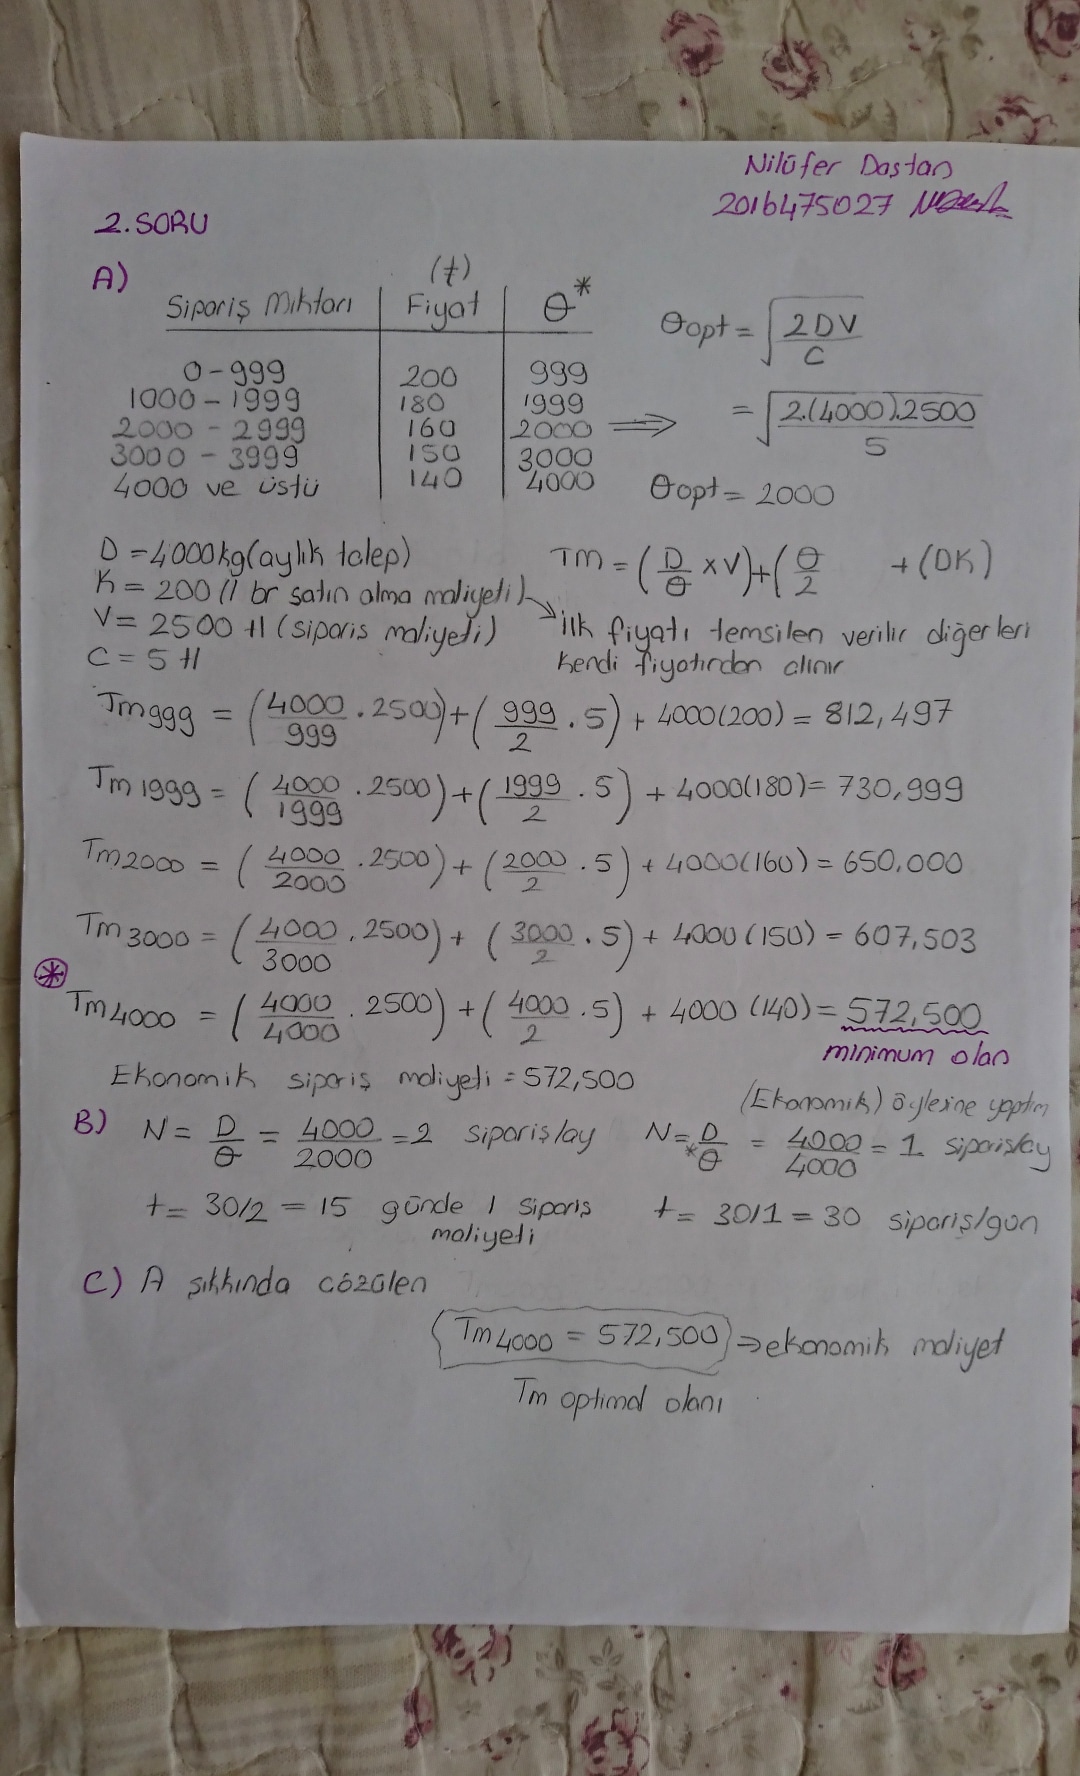 Nilüfer Dastan
2016475027
2. SORU
A)
(₺)
Sipariş Miktarı | Fiyat | Θ*
0-999 | 200 | 999
1000 - 1999 | 180 | 1999
2000 - 2999 | 160 | 2000 ⟹
3000 - 3999 | 150 | 3000
4000 ve üstü | 140 | 4000
Θopt = √(2DV / C)
= √(2.(4000).2500 / 5)
Θopt = 2000
D = 4000kg (aylık talep)
K = 200 (1 br satın alma maliyeti)
V = 2500 tl (sipariş maliyeti)
C = 5 tl
TM = (D/Θ x V) + (Θ/2 + (DK)
ilk fiyatı temsilen verilir diğerleri
kendi fiyatından alınır
Tm999 = (4000/999 . 2500) + (999/2 . 5) + 4000(200) = 812,497
Tm1999 = (4000/1999 . 2500) + (1999/2 . 5) + 4000(180) = 730,999
Tm2000 = (4000/2000 . 2500) + (2000/2 . 5) + 4000(160) = 650.000
Tm3000 = (4000/3000 . 2500) + (3000/2 . 5) + 4000(150) = 607,503
* Tm4000 = (4000/4000 . 2500) + (4000/2 . 5) + 4000 (140) = 572,500
minimum olan
Ekonomik sipariş maliyeti = 572,500
(Ekonomik) öylesine yaptım
B) N = D/Θ = 4000/2000 = 2 sipariş/ay
t = 30/2 = 15 günde 1 sipariş
maliyeti
N = D/*Θ = 4000/4000 = 1 sipariş/ay
t = 30/1 = 30 sipariş/gün
C) A şıkkında çözülen
Tm4000 = 572,500 ⇒ ekonomik maliyet
Tm optimal olanı